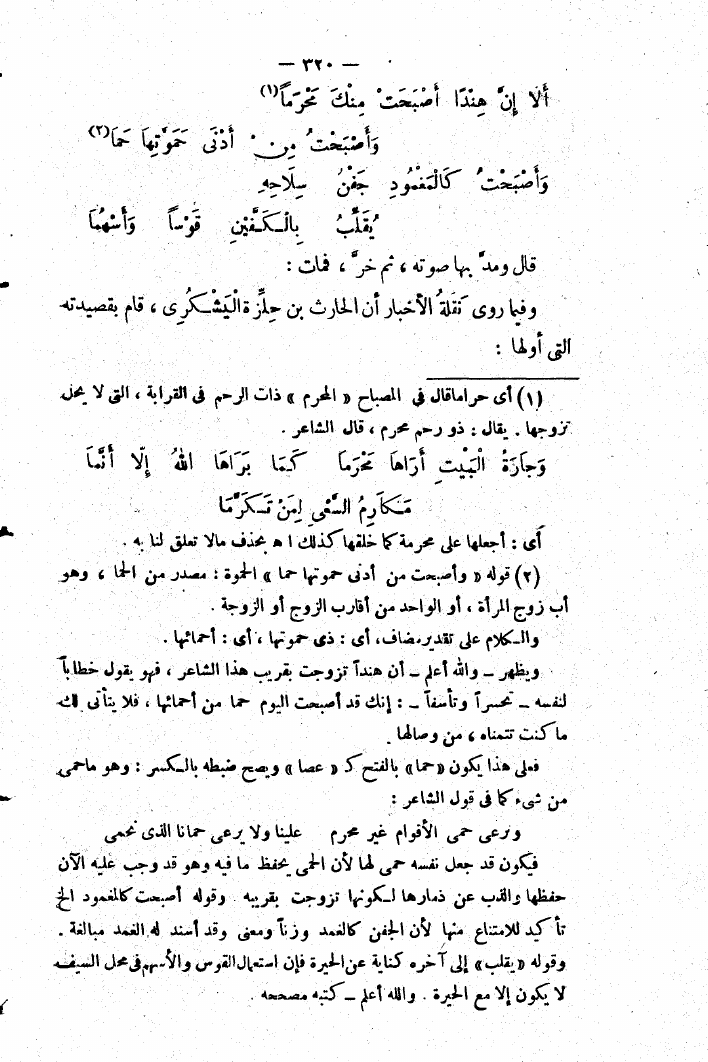 — ٣٢٠ —
أَلَا إِنَّ هِنْدًا أَصْبَحَتْ مِنْكَ مَحْرَمَاً(١)
وَأَصْبَحْتَ مِنْ أَدْنَى حَمَوَّتِهَا حَمَا(٢)
وَأَصْبَحْتَ كَالْمَغْمُودِ جَفْنُ سِلَاحِهِ
يُقَلِّبُ بِالْكَفَّيْنِ قَوْساً وَأَسْهُمَا
قال ومدَّ بها صوته ، ثم خرَّ ، فمات :
وفيما روى نَقَلَةُ الأخبار أن الحارث بن حِلِزِّة الْيَشْكُرِى ، قام بقصيدته
التى أولها :
(١) أى حراماقال فى المصباح « المحرم » ذات الرحم فى القرابة ، التى لا يحل
تزوجها . يقال : ذو رحم محرم ، قال الشاعر .
وَجَارَةُ الْبَيْتِ أَرَاهَا مَحْرَمَا كَمَا بَرَاهَا اللهُ إِلّا أَنَّمَا
مَكَارِمُ السَّعْىِ لِمَنْ تَكَرَّمَا
أى : أجعلها على محرمة كما خلقها كذلك ا ه بحذف مالا تعلق لنا به .
(٢) قوله « وأصبحت من أدنى حموتها حما » الحموة : مصدر من الحما ، وهو
أب زوج المرأة ، أو الواحد من أقارب الزوج أو الزوجة .
والكلام على تقدير مضاف، أى : ذى حموتها ، أى : أحمائها .
ويظهر ــ والله أعلم ــ أن هنداً تزوجت بقريب هذا الشاعر ، فهو يقول خطاباً
لنفسه ــ تحسراً وتأسفاً ــ : إنك قد أصبحت اليوم حما من أحمائها ، فلا يتأتى لك
ما كنت تتمناه ، من وصالها .
فعلى هذا يكون «حما» بالفتح كـ « عصا » ويصح ضبطه بالكسر : وهو ماحمى
من شىء كما فى قول الشاعر :
ونرعى حمى الأقوام غير محرم علينا ولا يرعى حمانا الذى نحمى
فيكون قد جعل نفسه حمى لها لأن الحمى يحفظ ما فيه وهو قد وجب عليه الآن
حفظها والذب عن ذمارها لكونها تزوجت بقريبه . وقوله أصبحت كالمغمود الخ
تأكيد للامتناع منها لأن الجفن كالغمد وزناً ومعنى وقد أسند له الغمد مبالغة .
وقوله « يقلب » إلى آخره كناية عن الحيرة فإن استعمال القوس والأسهم فى محل السيف
لا يكون إلا مع الحيرة . والله أعلم ــ كتبه مصححه .